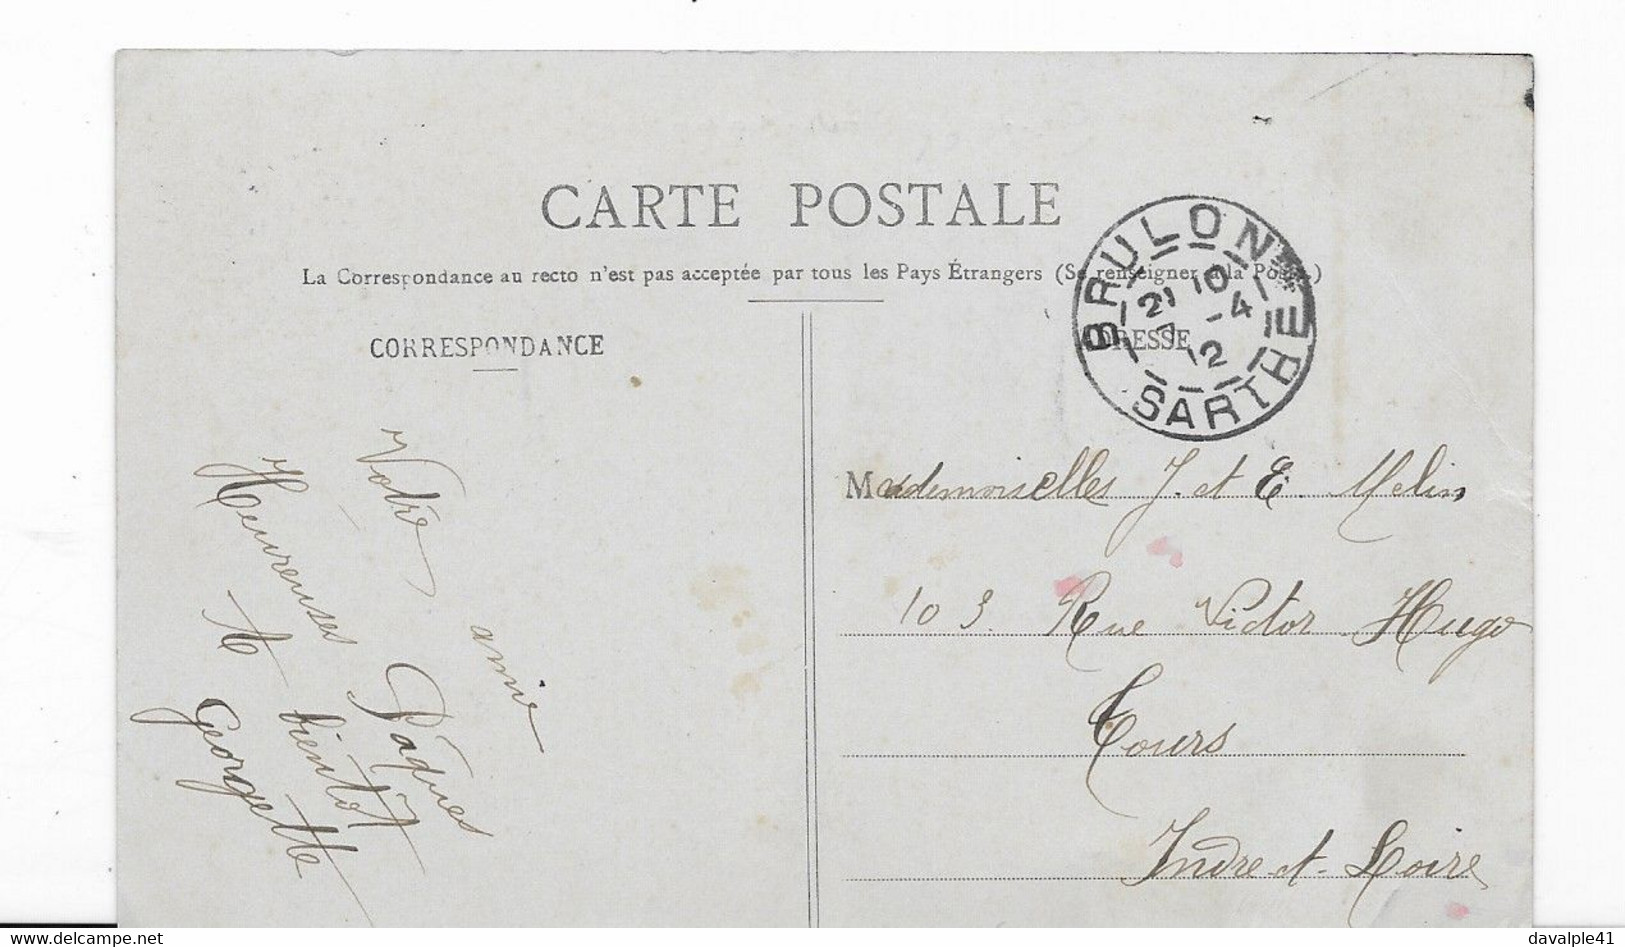 CARTE POSTALE
La Correspondance au recto n'est pas acceptée par tous les Pays Étrangers (Se renseigner à la Poste)
CORRESPONDANCE
ADRESSE
BRULON
21 10
7 -4
12
SARTHE
Votre amie
Heureuses Pâques
A bientôt
Georgette
Mademoiselles J. et E. Melin
103. Rue Victor Hugo
Tours
Indre-et-Loire
www.delcampe.net
davalple41